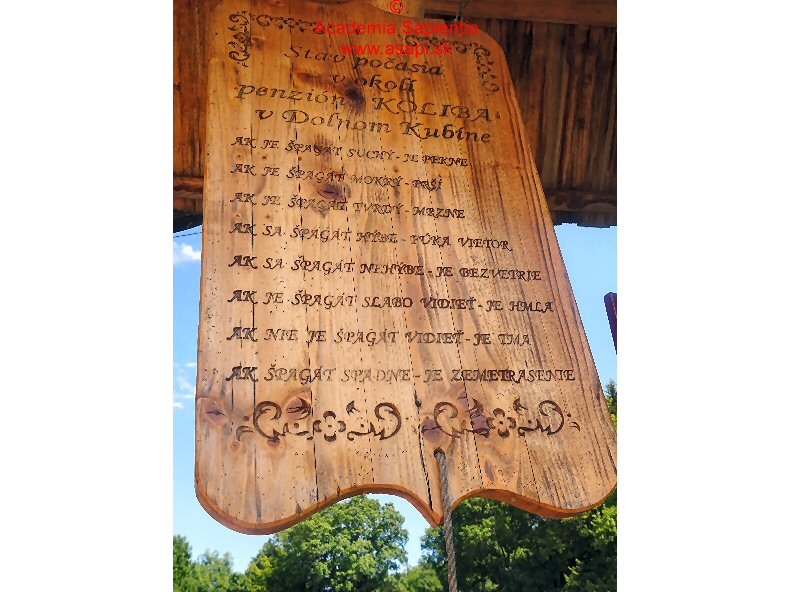 ©
Academia Sapientia
www.asapi.sk
Stav počasia
v okolí
penziónu KOLIBA
v Dolnom Kubíne
AK JE ŠPAGÁT SUCHÝ - JE PEKNE
AK JE ŠPAGÁT MOKRÝ - PRŠÍ
AK JE ŠPAGÁT TVRDÝ - MRZNE
AK SA ŠPAGÁT HÝBE - FÚKA VIETOR
AK SA ŠPAGÁT NEHÝBE - JE BEZVETRIE
AK JE ŠPAGÁT SLABO VIDIEŤ - JE HMLA
AK NIE JE ŠPAGÁT VIDIEŤ - JE TMA
AK ŠPAGÁT SPADNE - JE ZEMETRASENIE